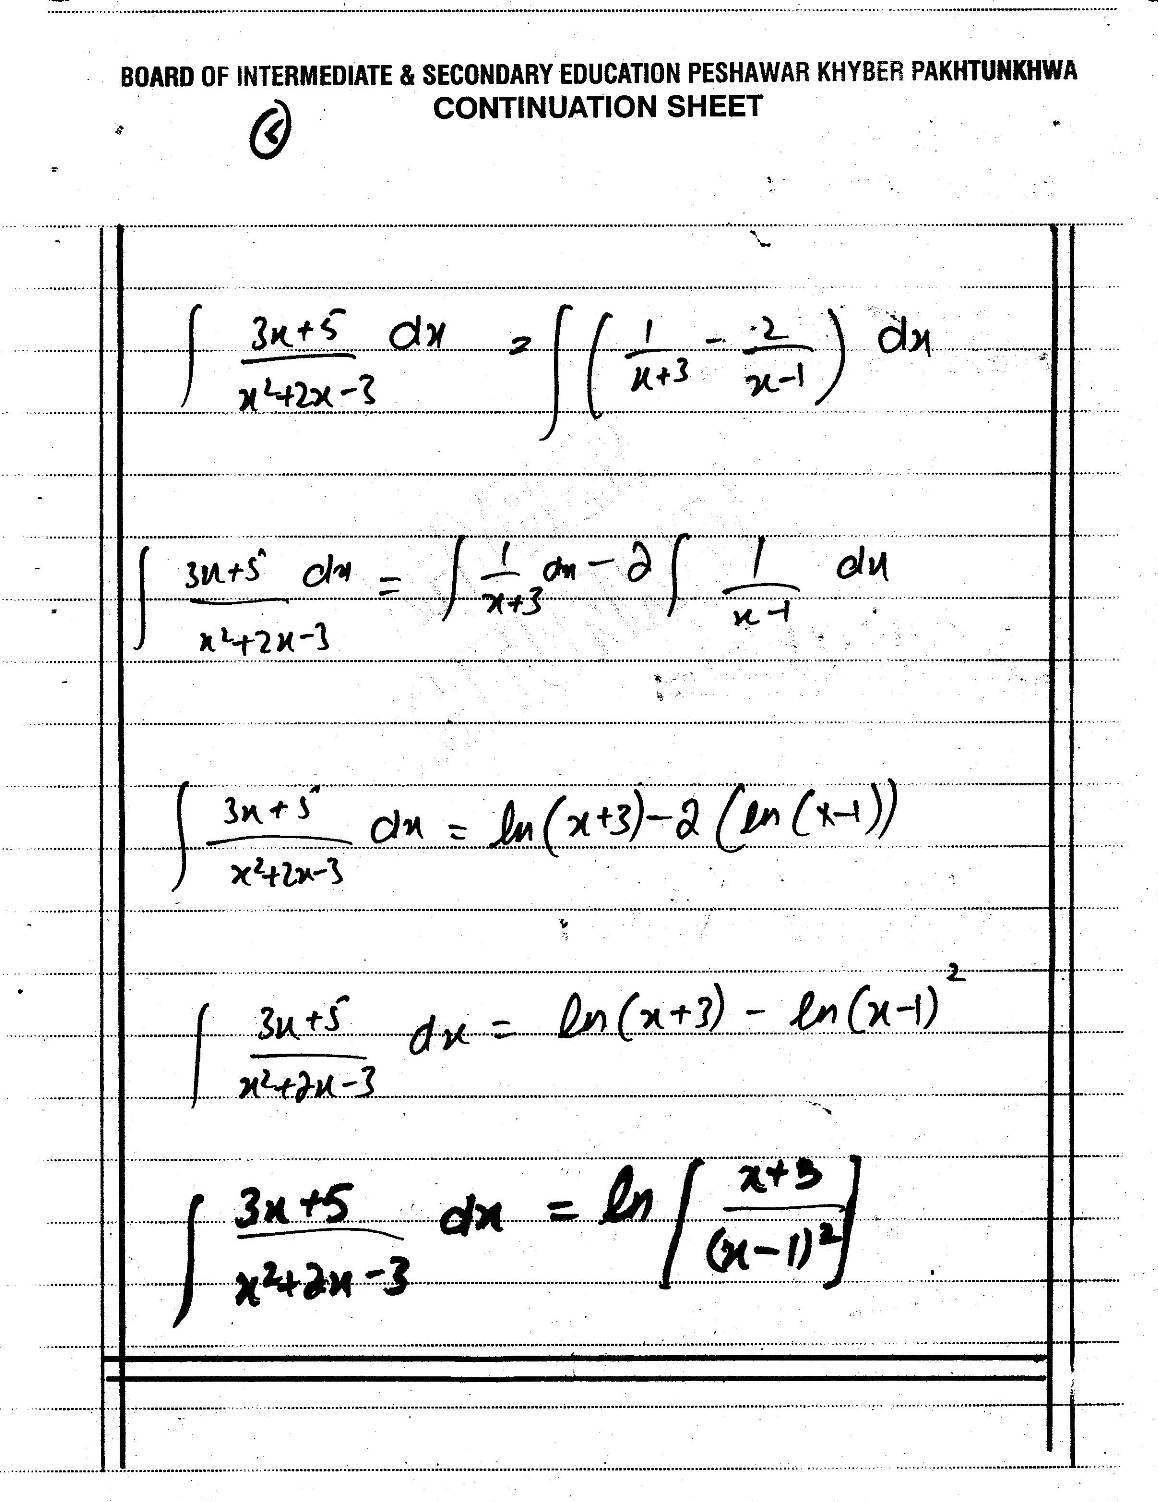 BOARD OF INTERMEDIATE & SECONDARY EDUCATION PESHAWAR KHYBER PAKHTUNKHWA
CONTINUATION SHEET
∫ (3x+5)/(x²+2x-3) dx = ∫ (1/(x+3) - 2/(x-1)) dx
∫ (3x+5)/(x²+2x-3) dx = ∫ 1/(x+3) dx - 2 ∫ 1/(x-1) dx
∫ (3x+5)/(x²+2x-3) dx = ln(x+3)-2(ln(x-1))
∫ (3x+5)/(x²+2x-3) dx = ln(x+3) - ln(x-1)²
∫ (3x+5)/(x²+2x-3) dx = ln[(x+3)/(x-1)²]